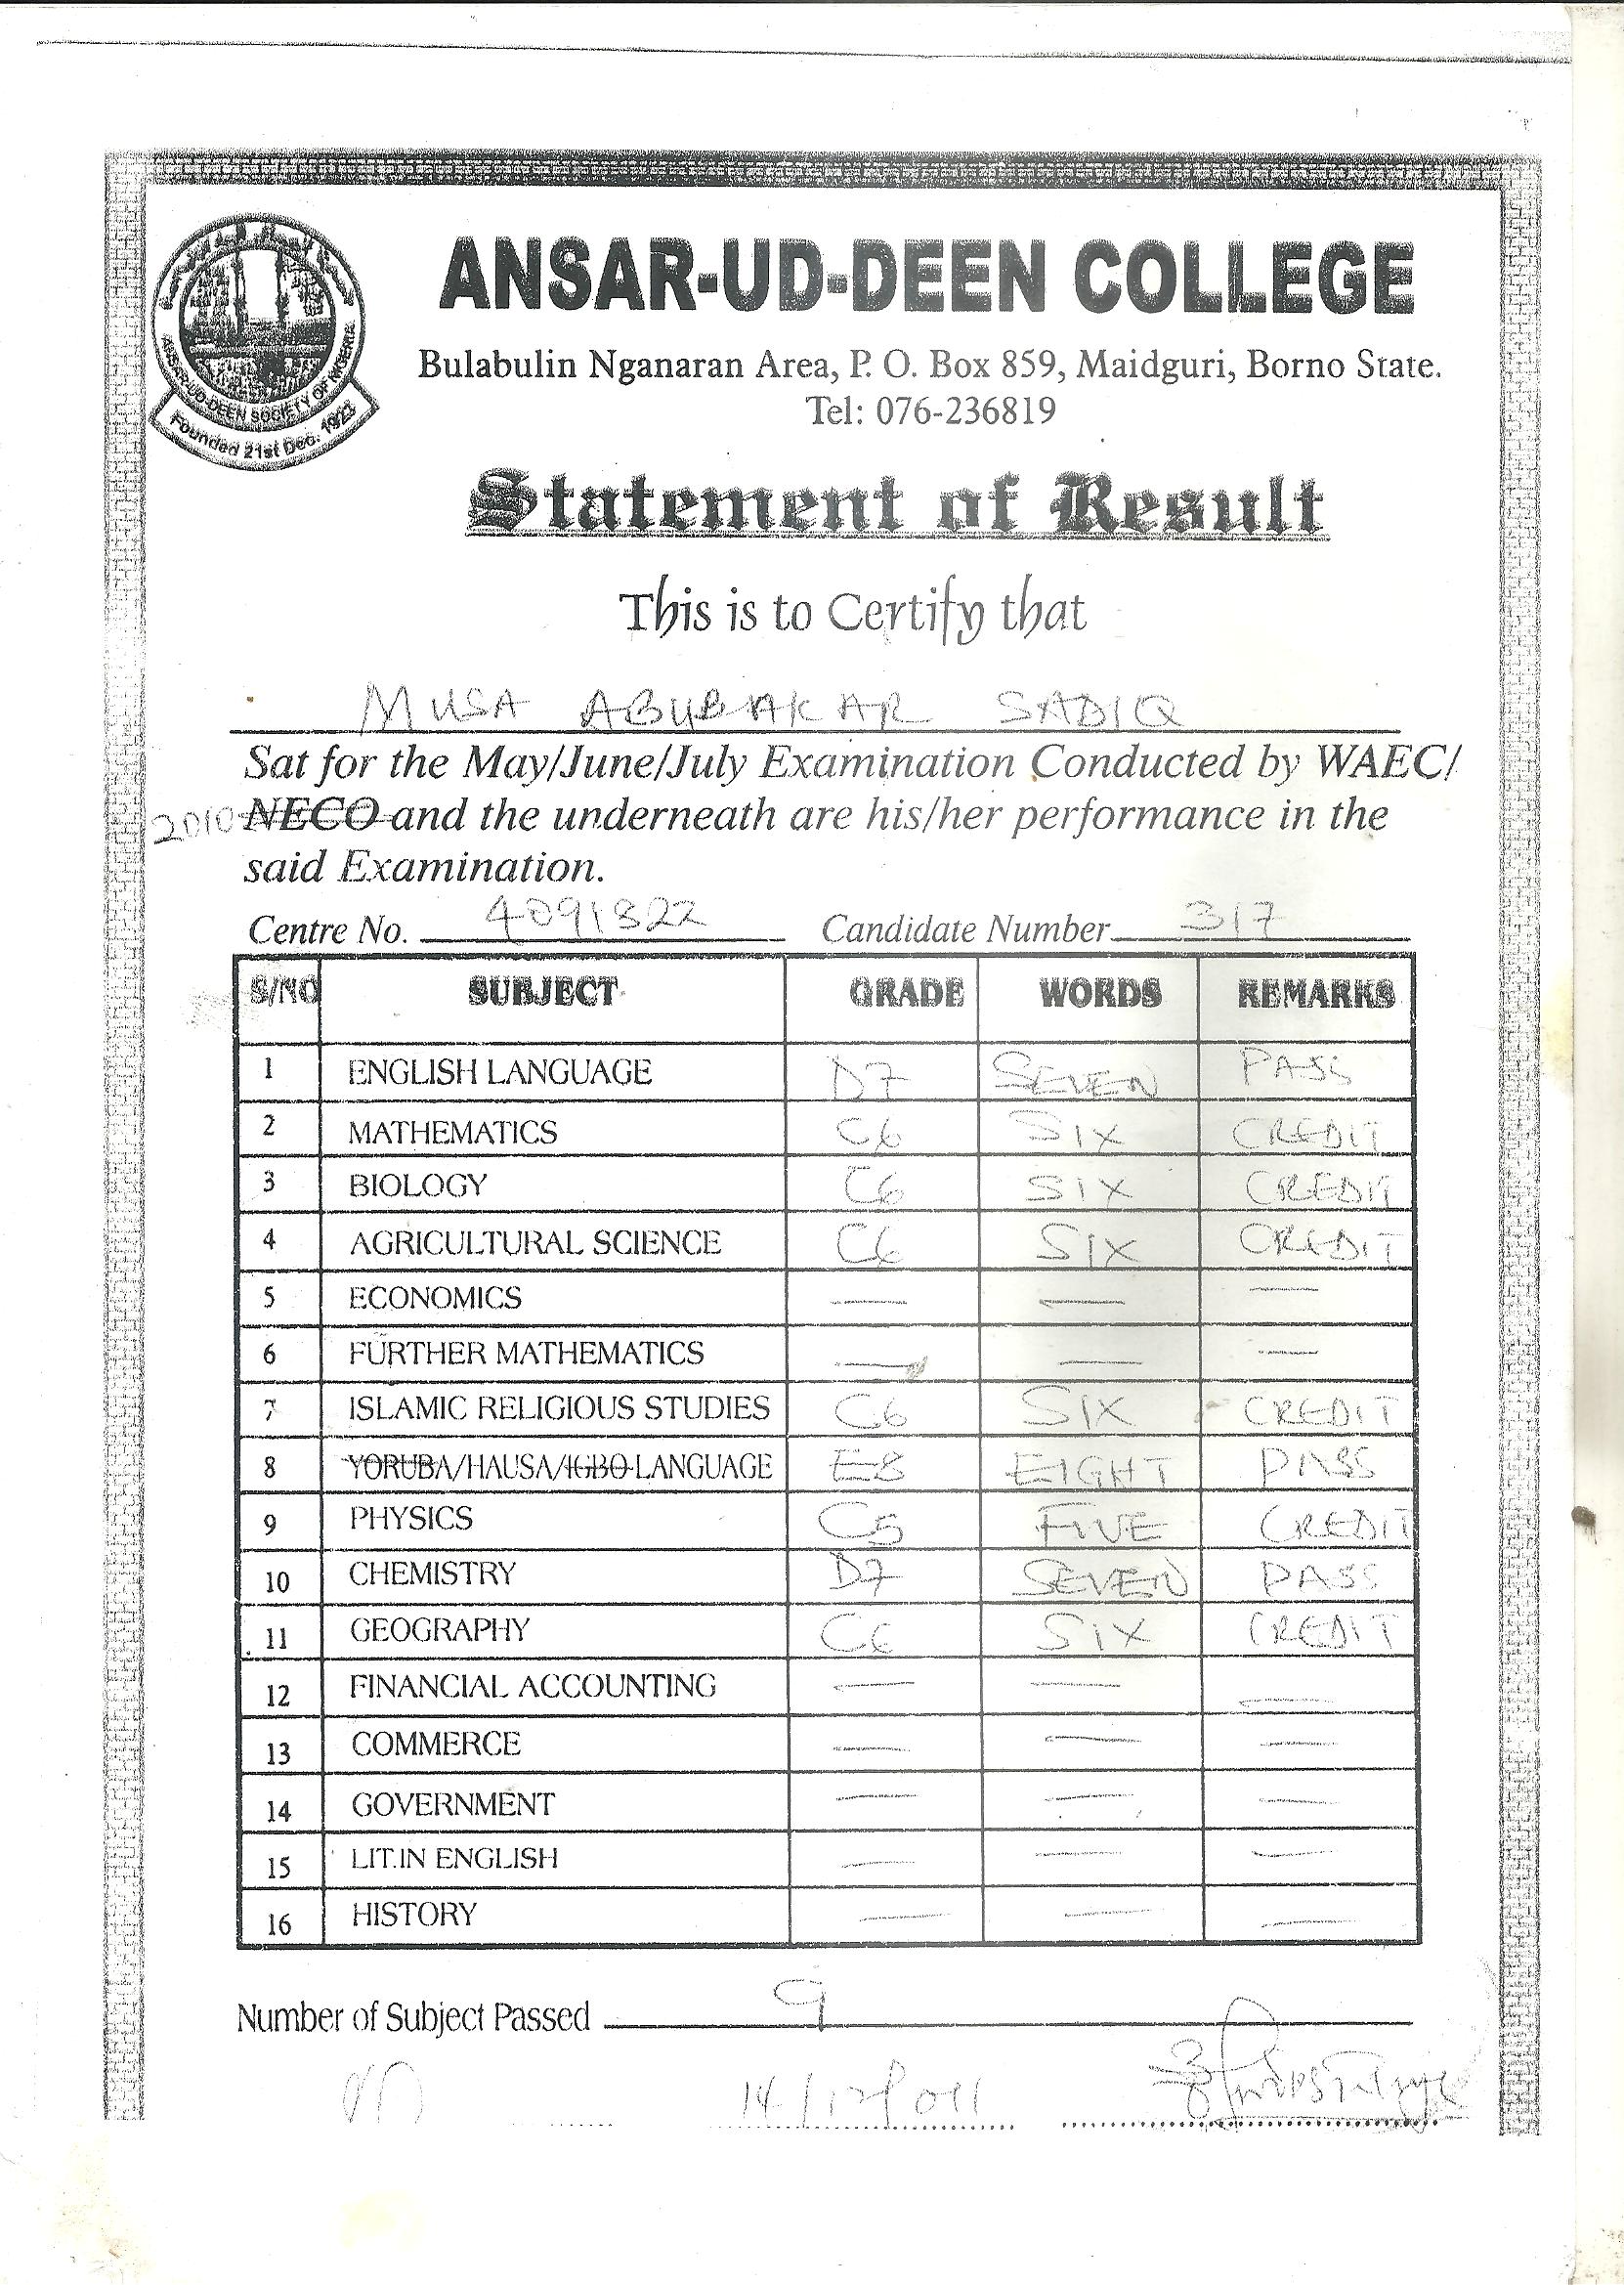 ANSAR-UD-DEEN SOCIETY OF NIGERIA
Founded 21st Dec. 1923
ANSAR-UD-DEEN COLLEGE
Bulabulin Nganaran Area, P. O. Box 859, Maidguri, Borno State.
Tel: 076-236819
Statement of Result
This is to Certify that
MUSA ABUBAKAR SADIQ
Sat for the May/June/July Examination Conducted by WAEC/
2010 NECO and the underneath are his/her performance in the
said Examination.
Centre No. 4091322 Candidate Number 317
S/NO SUBJECT GRADE WORDS REMARKS
1 ENGLISH LANGUAGE D7 SEVEN PASS
2 MATHEMATICS C6 SIX CREDIT
3 BIOLOGY C6 SIX CREDIT
4 AGRICULTURAL SCIENCE C6 SIX CREDIT
5 ECONOMICS — — —
6 FURTHER MATHEMATICS — — —
7 ISLAMIC RELIGIOUS STUDIES C6 SIX CREDIT
8 YORUBA/HAUSA/IGBO LANGUAGE E8 EIGHT PASS
9 PHYSICS C5 FIVE CREDIT
10 CHEMISTRY D7 SEVEN PASS
11 GEOGRAPHY C6 SIX CREDIT
12 FINANCIAL ACCOUNTING — — —
13 COMMERCE — — —
14 GOVERNMENT — — —
15 LIT.IN ENGLISH — — —
16 HISTORY — — —
Number of Subject Passed 9
14/12/011